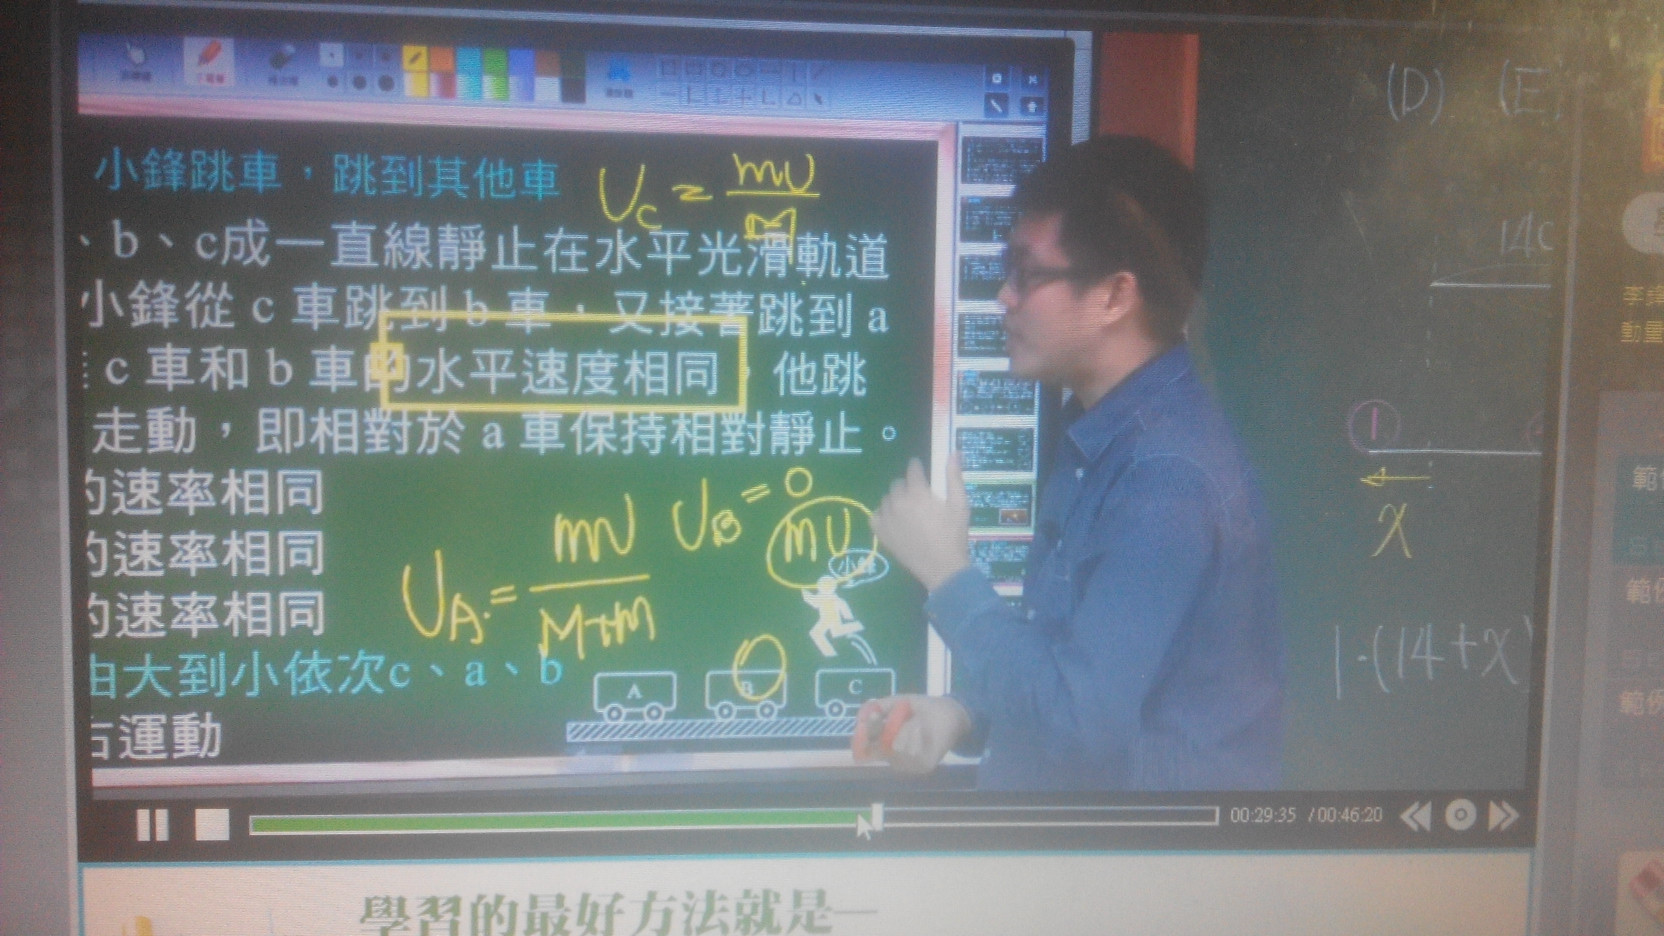 (D) (E
小鋒跳車，跳到其他車
U_C = mU / M
、b、c成一直線靜止在水平光滑軌道
小鋒從 c 車跳到 b 車，又接著跳到 a
c 車和 b 車的水平速度相同，他跳
走動，即相對於 a 車保持相對靜止。
的速率相同
的速率相同
的速率相同
由大到小依次c、a、b
右運動
U_B = 0
mU
小鋒
U_A = mU / M+m
A B C
14
1
x
1·(14+x)
動量
範
範例
範例
00:29:35 / 00:46:20
學習的最好方法就是—